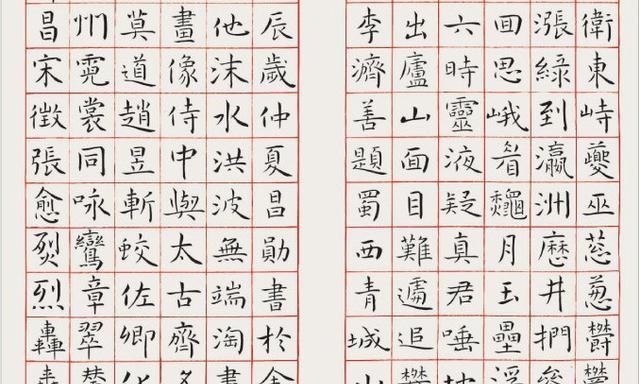 衛東峙夔巫葱蔥欝
漲綠到瀛洲歷井捫
回思峨眉龝月玉壘浮
六時靈液疑真君唾
出廬山面目難遽追
李濟善題蜀西青城山
辰歲仲夏昌勛書於金
他沫水洪波無端淘
畫像侍中與太古齊名
莫道趙昱斬蛟佐卿化
州霓裳同咏鸞章翠
昌宋徵張愈烈烈轟